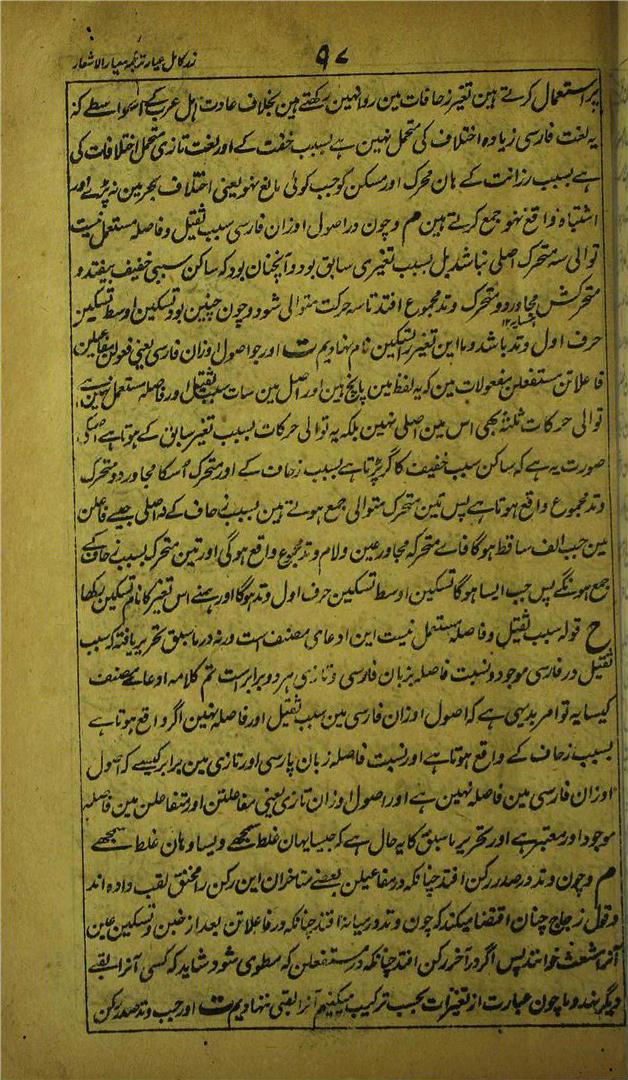 زر کامل عیار ترجمہ معیار الاشعار
۹۷
پر استعمال کرتے ہین تغیر زحافات مین روا نہین رکھتے ہین بخلاف عادت اہل عرب کے اسواسطے کہ
یہ لغت فارسی زیادہ اختلاف کی متحمل نہین ہے بسبب خفت کے اور لغت تازی متحمل اختلافات کی
ہے بسبب رزانت کے ہان محرک اور مسکن کو جب کوئی مانع نہو یعنی اختلاف بحر مین نہ پڑے اور
اشتباہ واقع نہو جمع کرتے ہین م و چون در اصول اوزان فارسی سبب ثقیل و فاصلہ مستعمل نیست
توالی سہ متحرک اصلی نباشد بل بسبب تغیری سابق بود و آنچنان بود کہ ساکن سببی خفیف بیفتد و
متحرکش مجاور دو متحرک وتد مجموع افتد تا سہ حرکت متوالی شود و چون چنین بود تسکین اوسط تسکین
حرف اول وتد باشد و ما این تغیر را تسکین نام نهادیم ت اور جو اصول اوزان فارسی یعنی فعولن مفاعیلن
فاعلاتن مستفعلن مفعولات مین کہ یہ لفظ مین پانچ ہین اور اصل مین سات سبب ثقیل اور فاصلہ مستعمل نہین ہے
توالی حرکات ثلثہ بھی اس مین اصلی نہین بلکہ یہ توالی حرکات بسبب تغیر سابق کے ہوتا ہے اسکی
صورت یہ ہے کہ ساکن سبب خفیف کا گر پڑتا ہے بسبب زحاف کے اور متحرک اُسکا مجاور دو متحرک
وتد مجموع واقع ہوتا ہے پس تین متحرک متوالی جمع ہوتے ہین بسبب زحاف کے نہ اصلی جیسے فاعلن
مین جب الف ساقط ہوگا فاے متحرکہ مجاور عین ولام وتد مجموع واقع ہوگی اور تین متحرک بسبب زحاف کے
جمع ہونگے پس جب ایسا ہوگا تسکین اوسط تسکین حرف اول وتد ہوگا اور ہمنے اس تغیر کا نام تسکین رکھا
ح قولہ سبب ثقیل و فاصلہ مستعمل نیست این ادعای مصنف است ورنہ در ما سبق تحریر یافتہ کہ سبب
ثقیل در فارسی موجود و نسبت فاصلہ بزبان فارسی و تازی ہر دو برابر است تم کلامہ ادعاے مصنف
کیسا یہ تو امر بدیہی ہے کہ اصول اوزان فارسی مین سبب ثقیل اور فاصلہ نہین اگر واقع ہوتا ہے
بسبب زحاف کے واقع ہوتا ہے اور نسبت فاصلہ زبان پارسی اور تازی مین برابر کیسے کہ اصول
اوزان فارسی مین فاصلہ نہین ہے اور اصول اوزان تازی یعنی مفاعلتن اور متفاعلن مین فاصلہ
موجود اور معتبر ہے اور تحریر ما سبق کا یہ حال ہے کہ جیسا یہان غلط سمجھے ویسا وہان غلط سمجھے
م و چون وتد در صدر رکن افتد چنانکہ در مفاعیلن بعضے متاخران این رکن را مخنق لقب دادہ اند
و قول زجاج چنان اقتضا میکند کہ چون وتد در میانہ افتد چنانکہ در فاعلاتن بعد از خبن و تسکین عین
آنرا مشعث خوانند پس اگر در آخر رکن افتد چنانکہ در مستفعلن کہ مطوی شود شاید کہ کسی آنرا لقبے
دیگر نہد و ما چون عبارت از تغیرات بحسب ترکیب میکنیم آنرا لقبی ننہادیم ت اور جب وتد صدر رکن